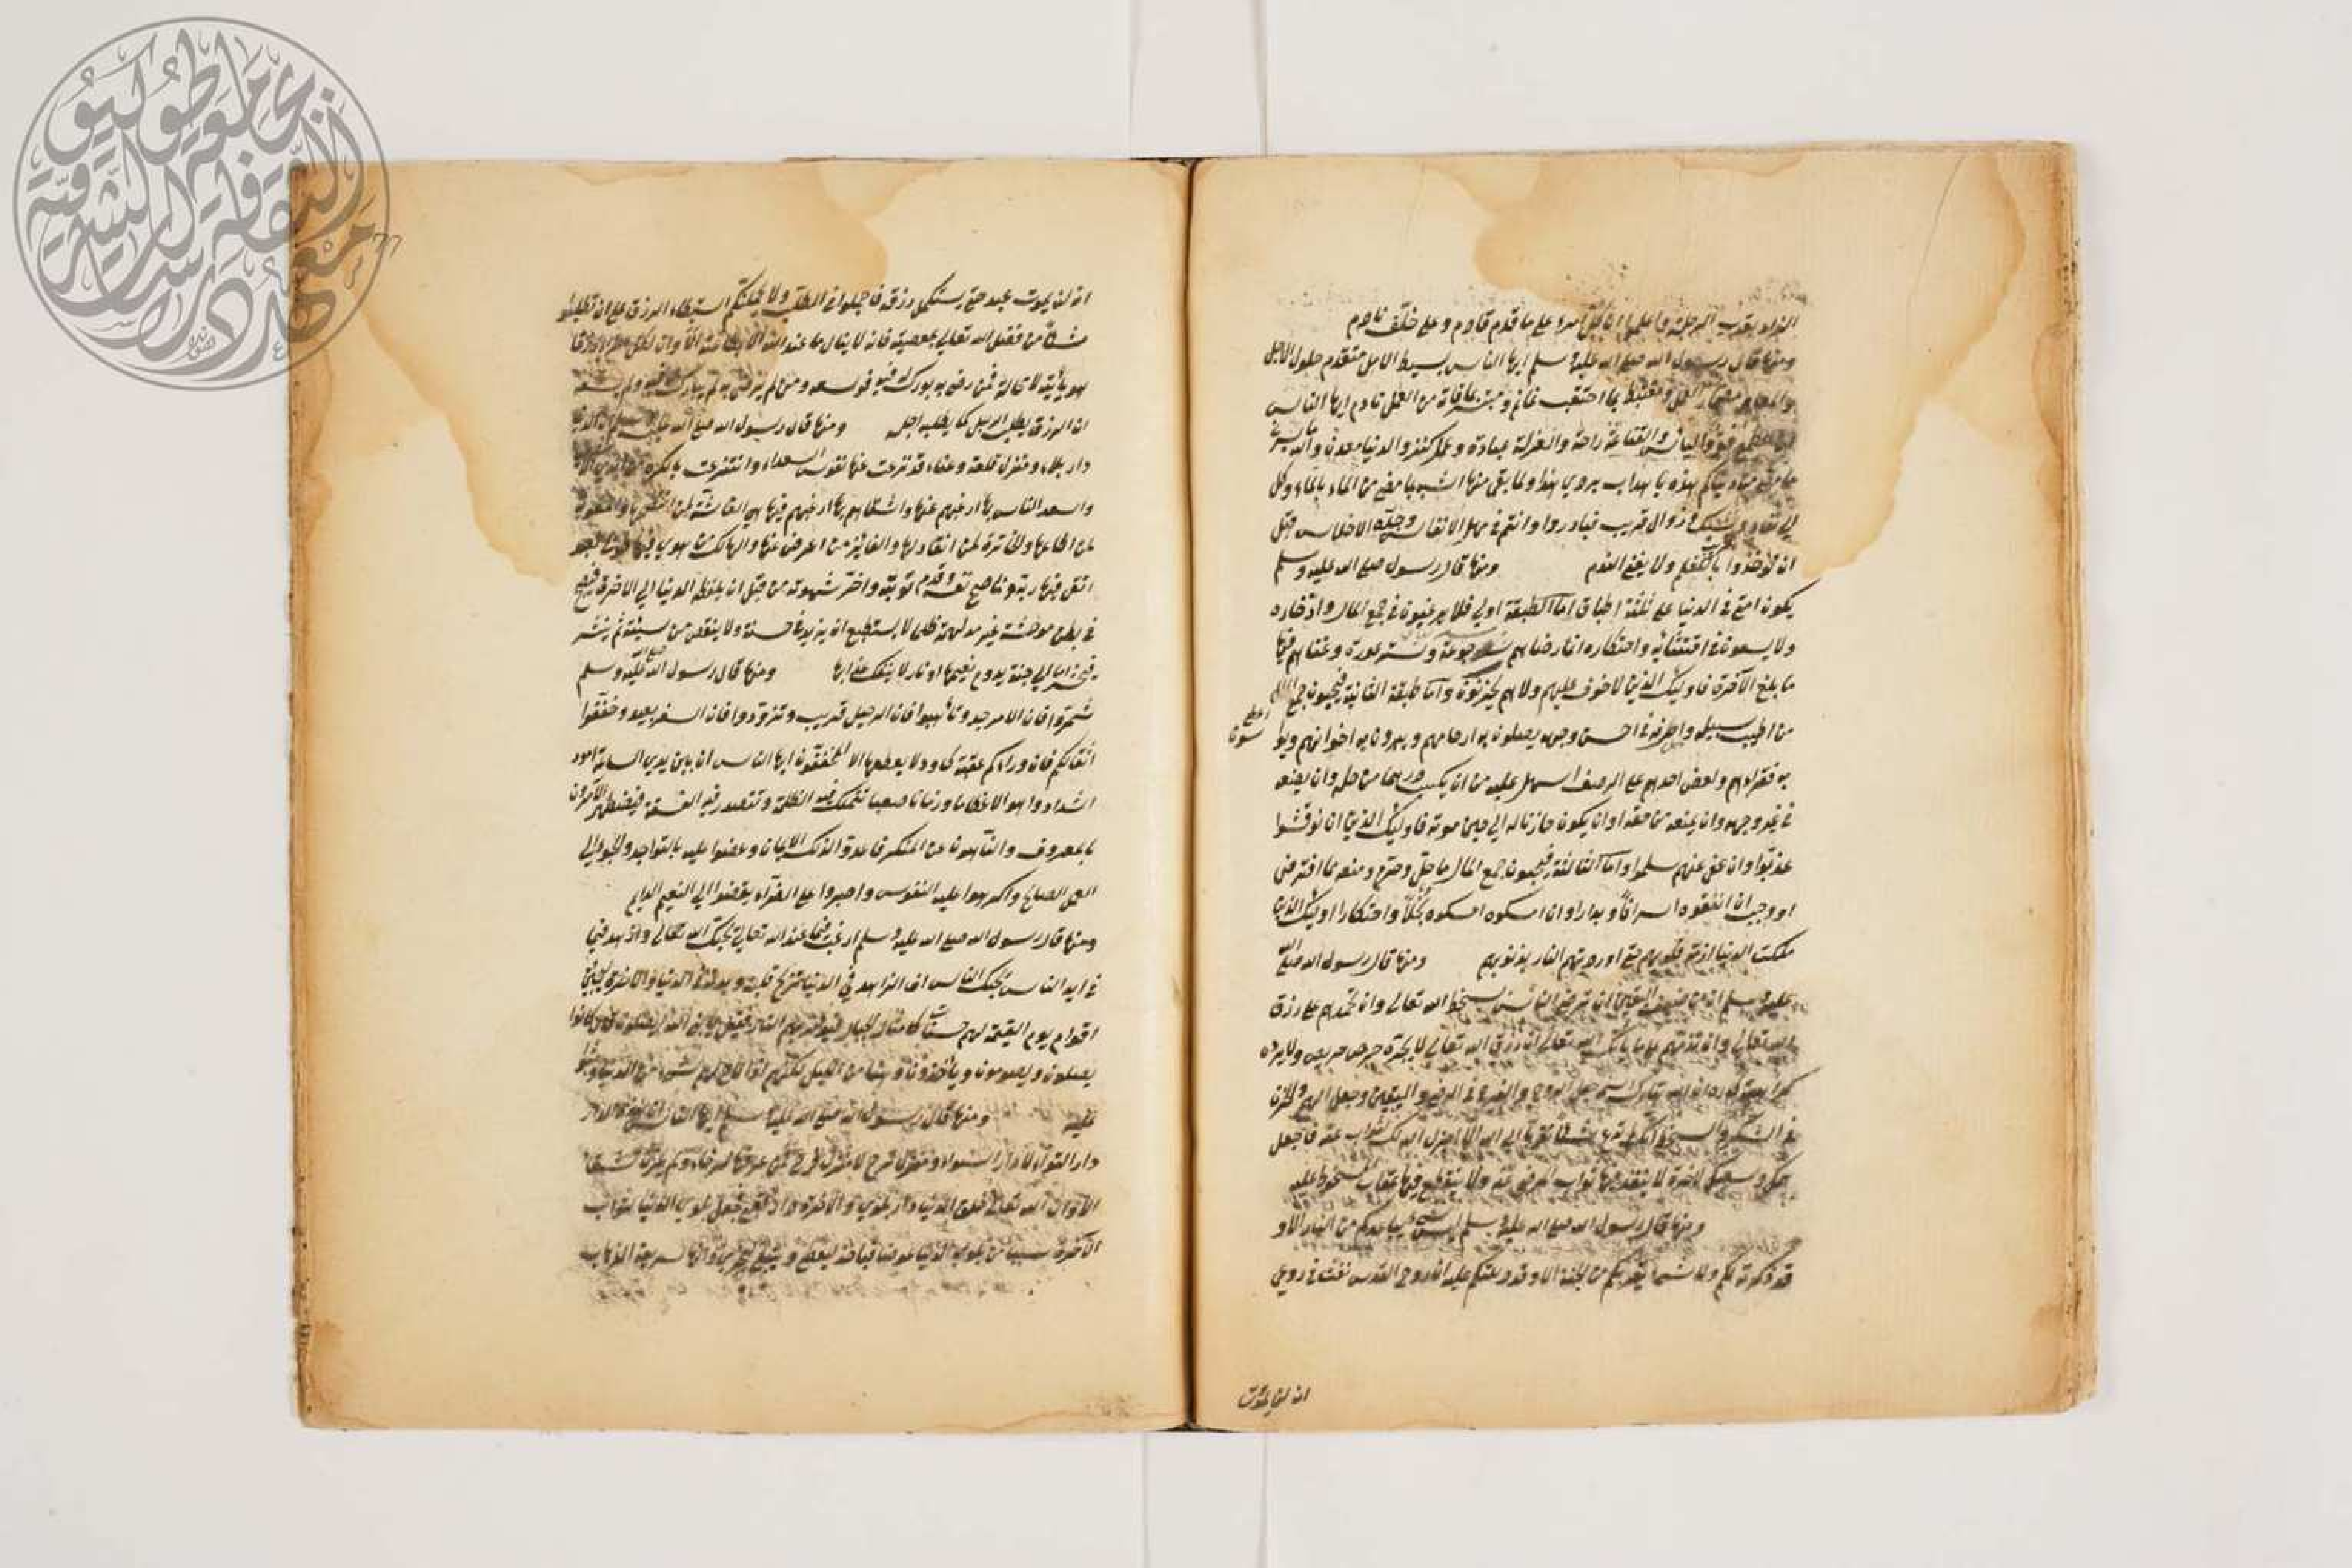 الزاد بقرب الرحلة واعلموا ان كل امرء على ما قدم قادم وعلى خلّف نادم
ومنها قال رسول الله صلى الله عليه وسلم ايها الناس بسيط الامل متقدم حلول الاجل
والمعاد مضمار العمل ومغتبط بما احتقب غانم ومبتئس بما فاته من العمل نادم ايها الناس
ان الطمع فقر والياس غنى والقناعة راحة والعزلة عبادة والعمل كنز والدنيا معدن والله ما يسرني
ما مضى من دنياكم هذه باهداب بردي هذا ولما بقى منها اشبه بما مضى من الماء بالماء وكل
الى نفاد وشيك وزوال قريب فبادروا وانتم في مهل الانفاس وجدّة الاحلاس قبل
ان تؤخذوا بالكظم ولا يغني الندم ومنها قال رسول صلى الله عليه وسلم
يكون امتي في الدنيا على ثلثة اطباق اما الطبقة اولي فلا يرغبون في جمع المال وادخاره
ولا يسعون في اقتنائه واحتكاره انما رضاهم سد جوعة وستر عورة وغناهم فيها
ما بلغ الآخرة فاوليك الذين لا خوف عليهم ولا هم يحزنون واما طبقة الثانية فيحبون جمع المال
من اطيب سبيله واصرفه في احسن وجوهه يصلون به ارحامهم ويبرون به اخوانهم ويواسون
به فقراءهم ولعض احدهم على الرصف اسهل عليه من ان يكسب درهما من حله وان يضعه
في غير وجهه وان يمنعه من حقه او ان يكون خازنا له الي حين موته فاوليك الذين ان نوقشوا
عذبوا وان عفي عنهم سلموا واما الثالثة فيحبون جمع المال ما حل وحرم ومنعه مما افترض
او وجب ان انفقوه اسرافاً وبدارا وان امسكوه امسكوه بخلاً واحتكارا اوليك الذين
ملكت الدنيا ازمة قلوبهم حتى اوردتهم النار بذنوبهم ومنها قال رسول الله صلى الله
عليه وسلم ان من ضعف اليقين ان ترضى الناس بسخط الله تعالى وان تحمدهم على رزق
الله تعالى وان تذمهم على ما لم ياتك الله تعالى ان رزق الله تعالى لا يجره حرص حريص ولا يرده
كراهية كاره ان الله تبارك اسمه جعل الروح والفرح في الرضى واليقين وجعل الهم والحزن
في الشك والسخط انك لن تدع شيئاً تقرباً الى الله الا اجزل الله لك الثواب عنه فاجعل
همك وسعيك لاخرة لا ينفد فيها ثواب المرضى عنه ولا ينقطع فيها عقاب المسخوط عليه
ومنها قال رسول الله صلى الله عليه وسلم ليس شيء يباعدكم من النار الا و
قد ذكرته لكم ولا شيء يقربكم من الجنة الا وقد دللتكم عليه ان روح القدس نفث في روعي
انه لن يموت
انه لن يموت عبد حتى يستكمل رزقه فاجملوا في الطلب ولا يحملنكم استبطاء الرزق على ان تطلبوا
شيئاً من فضل الله تعالى بمعصيته فانه لا ينال ما عند الله الا بطاعته الا وان لكل امرء رزقا
هو يأتيه لا محالة فمن رضي به بورك له فيه فوسعه ومن لم يرض به لم يبارك له فيه ولم يسعه
ان الرزق يطلب الرجل كما يطلبه اجله ومنها قال رسول الله صلى الله عليه وسلم ان الدنيا
دار بلاء ومنزل قلعة وعناء قد نزعت عنها نفوس السعداء وانتزعت بالكره من ايدي الاشقياء
واسعد الناس بها ارغبهم عنها واشقاهم بها ارغبهم فيها هي الغاشة لمن انتصحها والمغوية
لمن اطاعها والخاترة لمن انقاد لها والفائز من اعرض عنها والهالك من هوي فيها طوبى لعبد
اتقى فيها ربه وناصح نفسه وقدم توبته واخر شهوته من قبل ان يلفظه الدنيا الي الاخرة فيصبح
في بطن موحشة غير مدلهمة ظلماء لا يستطيع ان يزيد في حسنة ولا ينقص من سيئة ثم ينشر
فيحشر اما الي جنة يدوم نعيمها او نار لا ينفك عذابها ومنها قال رسول الله صلى الله عليه وسلم
شمروا فان الامر جد وتأهبوا فان الرحيل قريب وتزودوا فان السفر بعيد وخففوا
اثقالكم فان وراءكم عقبة كاودة لا يقطعها الا المخففون ايها الناس ان بين يدي الساعة امور
اشداد واهوالا عظاما وزمانا صعبا تتملك فيه الظلمة وتتصدر فيه الفسقة فيضطهد الآمرون
بالمعروف والناهون عن المنكر فاعدوا لذلك الايمان وعضوا عليه بالنواجذ والجوا الي
العمل الصالح واكرهوا عليه النفوس واصبروا على الضراء يفضوا الي النعيم الدايم
ومنها قال رسول الله صلى الله عليه وسلم ارغب فيما عند الله تعالى يحبك الله تعالى وازهد فيما
في ايد الناس يحبك الناس ان الزاهد في الدنيا يريح قلبه وبدنه في الدنيا والاخرة ليجيئن
اقوام يوم القيمة لهم حسنات كامثال الجبال فيؤمر بهم الى النار فقيل يا نبي الله ايصلون قال كانوا
يصلون ويصومون ويأخذون وهنا من الليل لكنهم اذا لاح لهم شيء من الدنيا وثبوا
عليه ومنها قال رسول الله صلى الله عليه وسلم ايها الناس ان هذه الدار
دار التواء لا دار استواء ومنزل ترح لا منزل فرح فمن عرفها لم يفرح لرخاء ولم يحزن لشقاء
الا وان الله تعالى خلق الدنيا دار بلوي والاخرة دار عقبي فجعل بلوي الدنيا لثواب
الآخرة سببا من بلوي الدنيا عوضا فيأخذ ليعطي ويبتلي ليجزي وانها لسريعة الذهاب